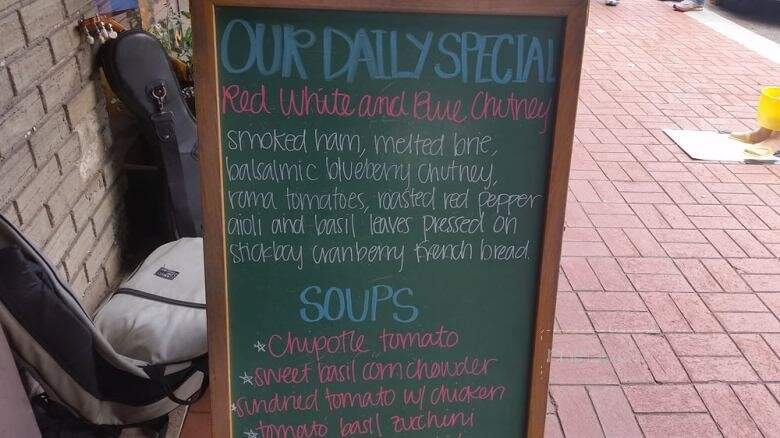 OUR DAILY SPECIAL
Red White and Blue Chutney
smoked ham, melted brie,
balsalmic blueberry chutney,
roma tomatoes, roasted red pepper
aioli and basil leaves pressed on
stickboy cranberry french bread.
SOUPS
*Chipotle tomato
*sweet basil corn chowder
*sundried tomato w/ chicken
*tomato basil zucchini